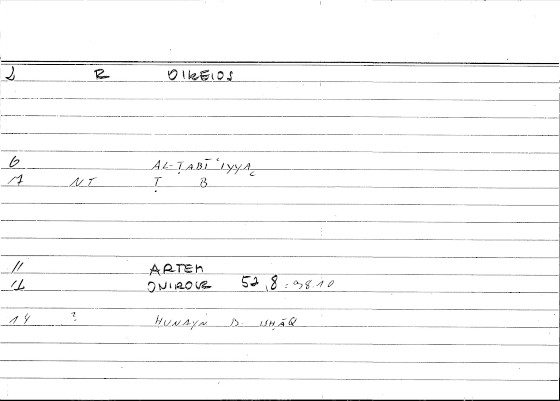 2 R OIKEIOS
6 AL-ṬABĪʿIYYA
7 NT Ṭ B
11 ARTEM
12 ONIROCR 52,8 : 9810
14 ? ḤUNAYN B. ISḤĀQ